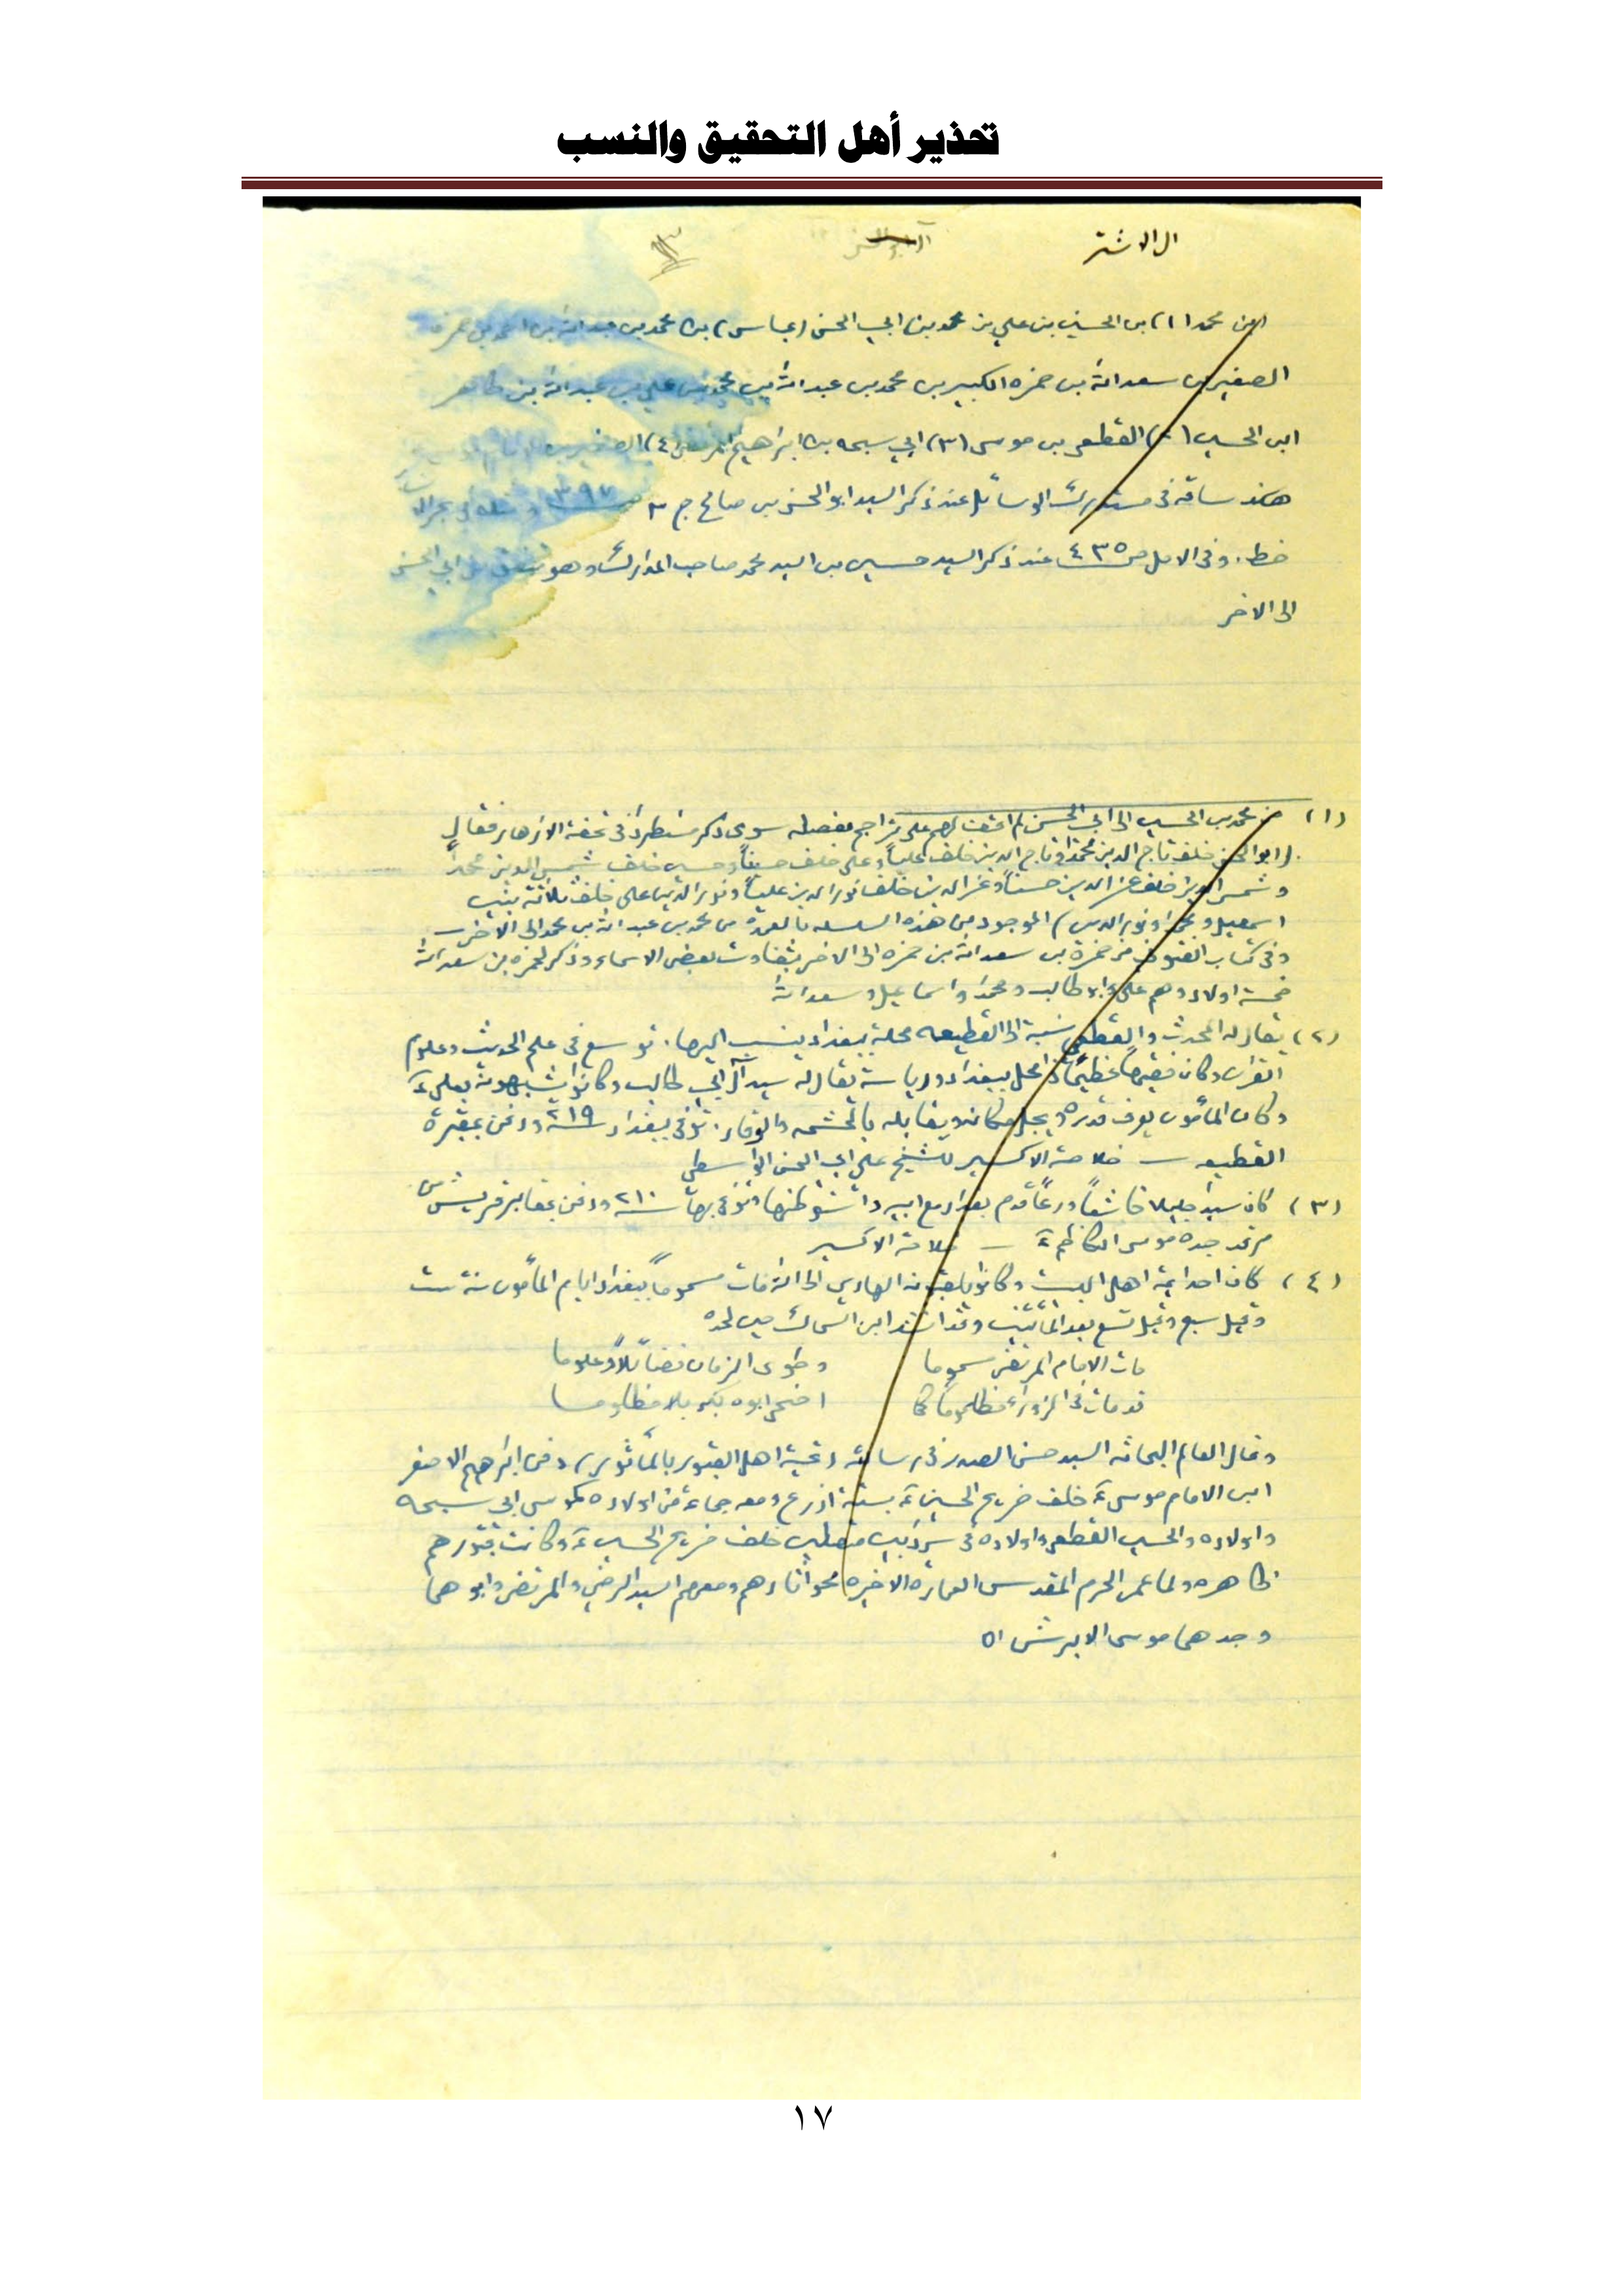 تحذير أهل التحقيق والنسب
ال الاشتر
ابن محمد (١) بن الحسين بن علي بن محمد بن ابي الحسن (عباس) بن محمد بن عبد الله بن احمد بن حمزه
الصغير بن سعد الله بن حمزه الكبير بن محمد بن عبد الله بن محمد بن علي بن عبد الله بن طاهر
ابن الحسين (٢) القطعي بن موسى (٣) ابي سبحه بن ابراهيم المرتضى (٤) الصغير بن
هكذا ساقه في مستدرك الوسائل عند ذكر السيد ابو الحسن بن صالح ج ٣ ص ٣٩٧
خط. وفي الامل ص ٤٣٥ عند ذكر السيد حسين بن السيد محمد صاحب المدارك وهو يتفق من ابي الحسن
الى الاخر
(١) من محمد بن الحسين الى ابي الحسن لم اقف لهم على تراجم مفصله سوى ذكر مستطرد في تحفة الازهار فقال
(ابو الحسن خلف تاج الدين محمدا وتاج الدين خلف علياً وعلي خلف حسيناً وحسين خلف شمس الدين محمداً
وشمس الدين خلف عز الدين حسيناً وعز الدين خلف نور الدين علياً ونور الدين علي خلف ثلاثة بنين
اسمعيل ومحمدا ونور الدين) الموجود من هذه السلسله بالعمدة من محمد بن عبد الله بن محمد الى الاخر
وفي كتاب من حمزة بن سعد الله بن حمزه الى الاخر بتفاوت بعض الاسماء وذكر لحمزه بن سعد الله
خمسة اولاد وهم علي وابو طالب ومحمد واسماعيل وسعد الله
(٢) يقال له المحدث والقطعي نسبة الى القطيعه محلة ببغداد ينسب اليها. توسع في علم الحديث وعلوم
القران وكان فقيهاً عظيماً ذا محل ببغداد ورياسة يقال له سيد آل ابي طالب وكانوا يشبهونه بعلي ع
وكان المأمون يعرف قدره ويجل مكانه ويقابله بالحشمه والوقار. توفي ببغداد سنة ٢١٩ ودفن بمقبرة
القطيعه ــ خلاصة الاكسير للشيخ علي ابي الحسن الواسطي
(٣) كان سيد جليلا خاشعاً ورعاً قدم بغداد مع ابيه واستوطنها وتوفي بها سنة ٢١٠ ودفن بمقابر قريش من
مرقد جده موسى الكاظم ع ــ خلاصة الاكسير
(٤) كان احد ايمة اهل البيت وكانوا يلقبونه الهادي الى الله مات مسموماً ببغداد ايام المأمون سنة ست
وقيل سبع وقيل تسع بعد المأتين وقد انشد ابن السماك حين لحده
مات الامام المرتضى مسموما وطوى الزمان فضائلاً وعلوما
قد مات في الزوراء مظلوما كما اضحى ابوه بكربلا مظلوما
وقال العالم البحاثه السيد حسن الصدر في رسالته (تحية اهل القبور بالمأثور) دفن ابراهيم الاصغر
ابن الامام موسى ع خلف ضريح الحسين ع بستة اذرع ومعه جماعة من اولاده كموسى ابي سبحه
واولاده والحسين القطعي واولاده في سردابين متصلين خلف ضريح الحسين ع وكانت قبورهم
ظاهره ولما عمر الحرم المقدس العمارة الاخيره محو اثارهم ومعهم السيد الرضي والمرتضى وابوهما
وجدهما موسى الابرش اه
١٧